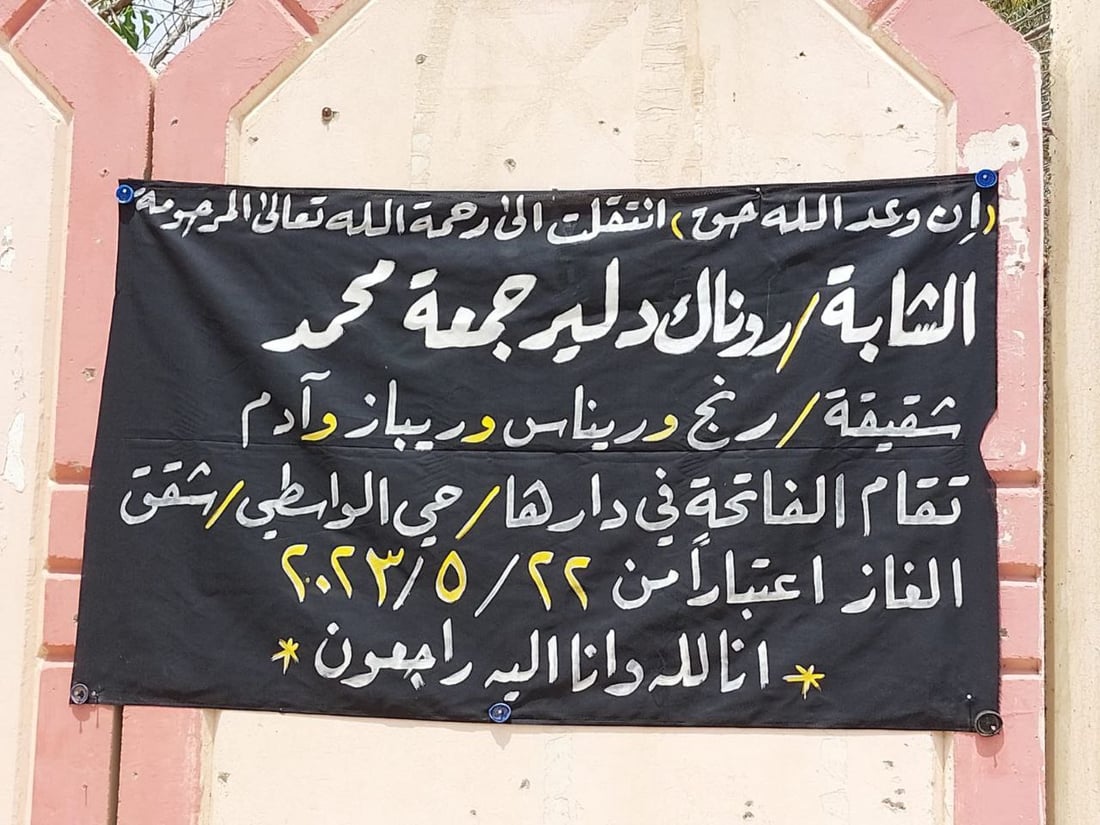 (إن وعد الله حق) انتقلت الى رحمة الله تعالى المرحومة
الشابة/روناك دلير جمعة محمد
شقيقة/رنج وريناس وريباز وآدم
تقام الفاتحة في دارها/حي الواسطي/شقق
الغاز اعتباراً من ٢٢/٥/٢٠٢٣
* انا لله وانا اليه راجعون *